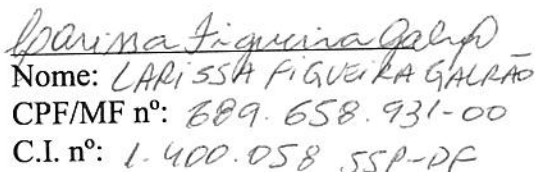 Larissa Figueira Galrão
Nome: LARISSA FIGUEIRA GALRÃO
CPF/MF nº: 689.658.931-00
C.I. nº: 1.400.058 SSP-DF